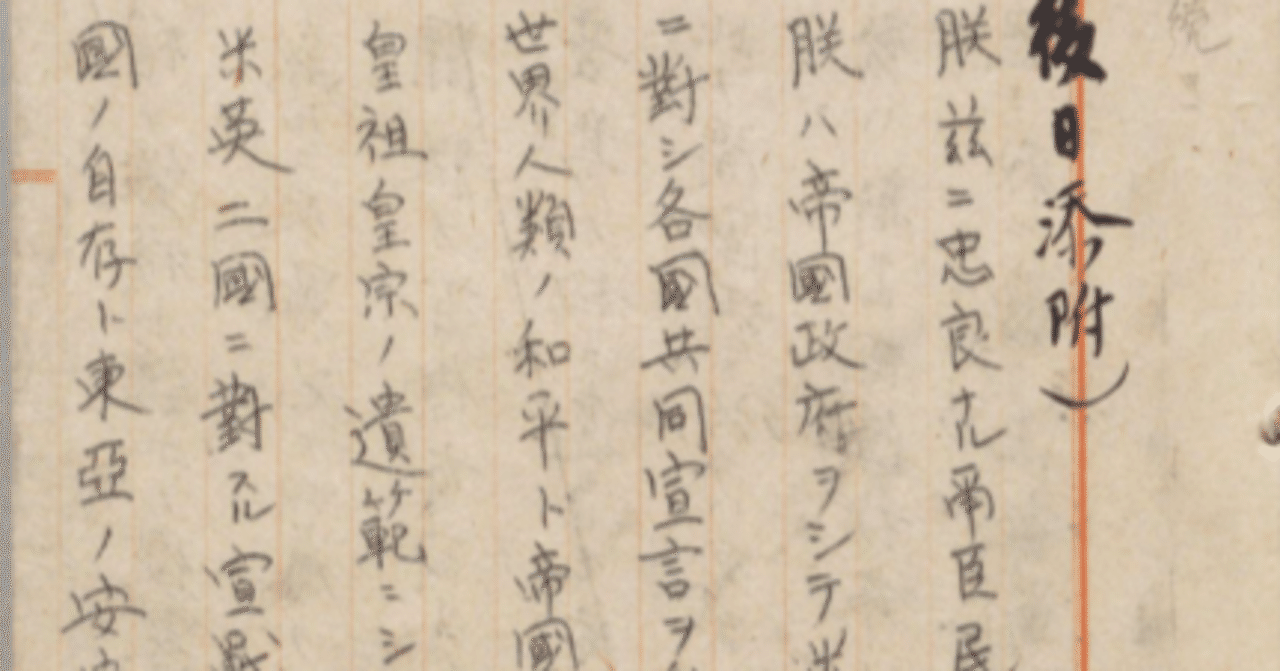 後日添附）
朕茲ニ忠良ナル爾臣民
朕ハ帝國政府ヲシテ米
ニ對シ各國共同宣言ヲ
世界人類ノ和平ト帝國
皇祖皇宗ノ遺範ニシ
米英二國ニ對スル宣戰
國ノ自存ト東亞ノ安